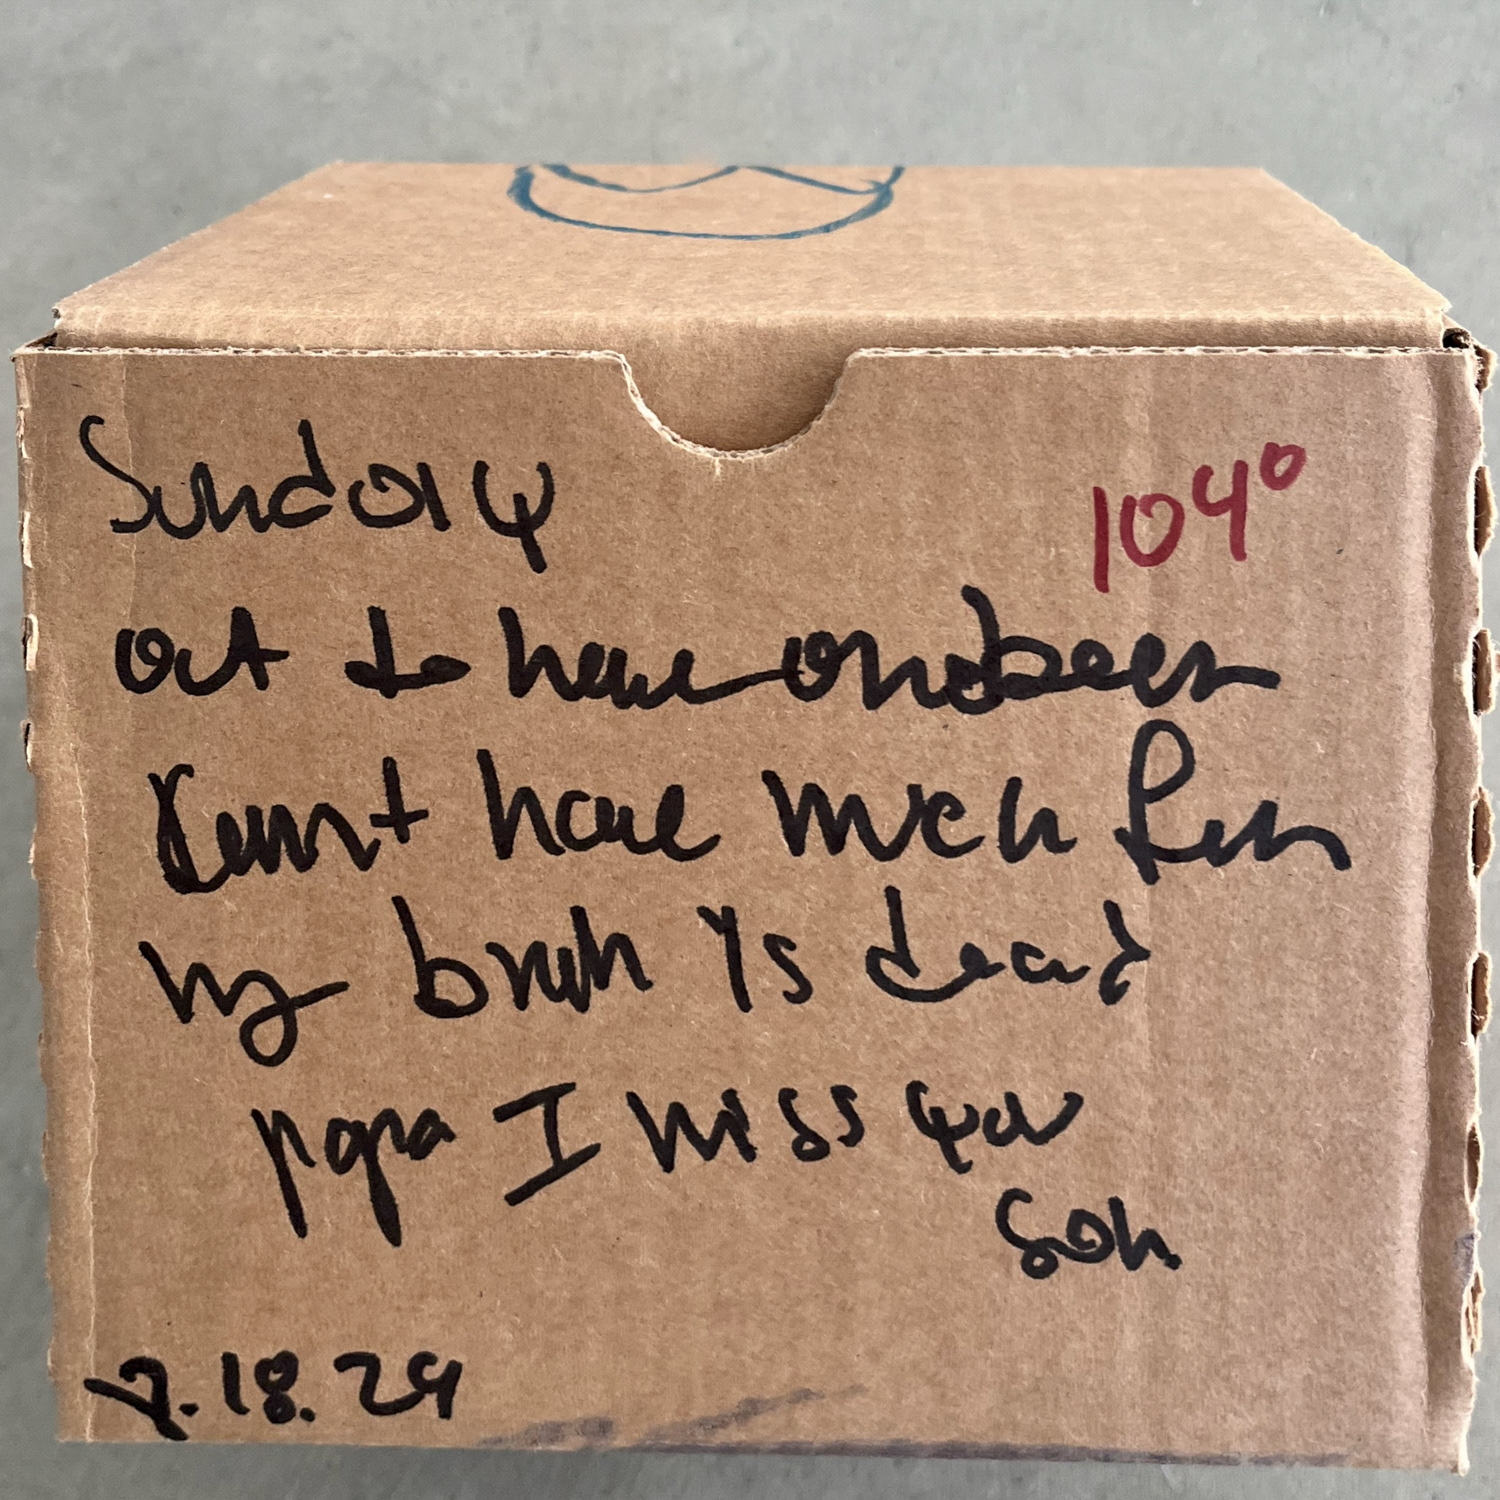 Sunday 104°
out to have
have much fun
my bruh is dead
papa I miss you
Son.
2.18.24